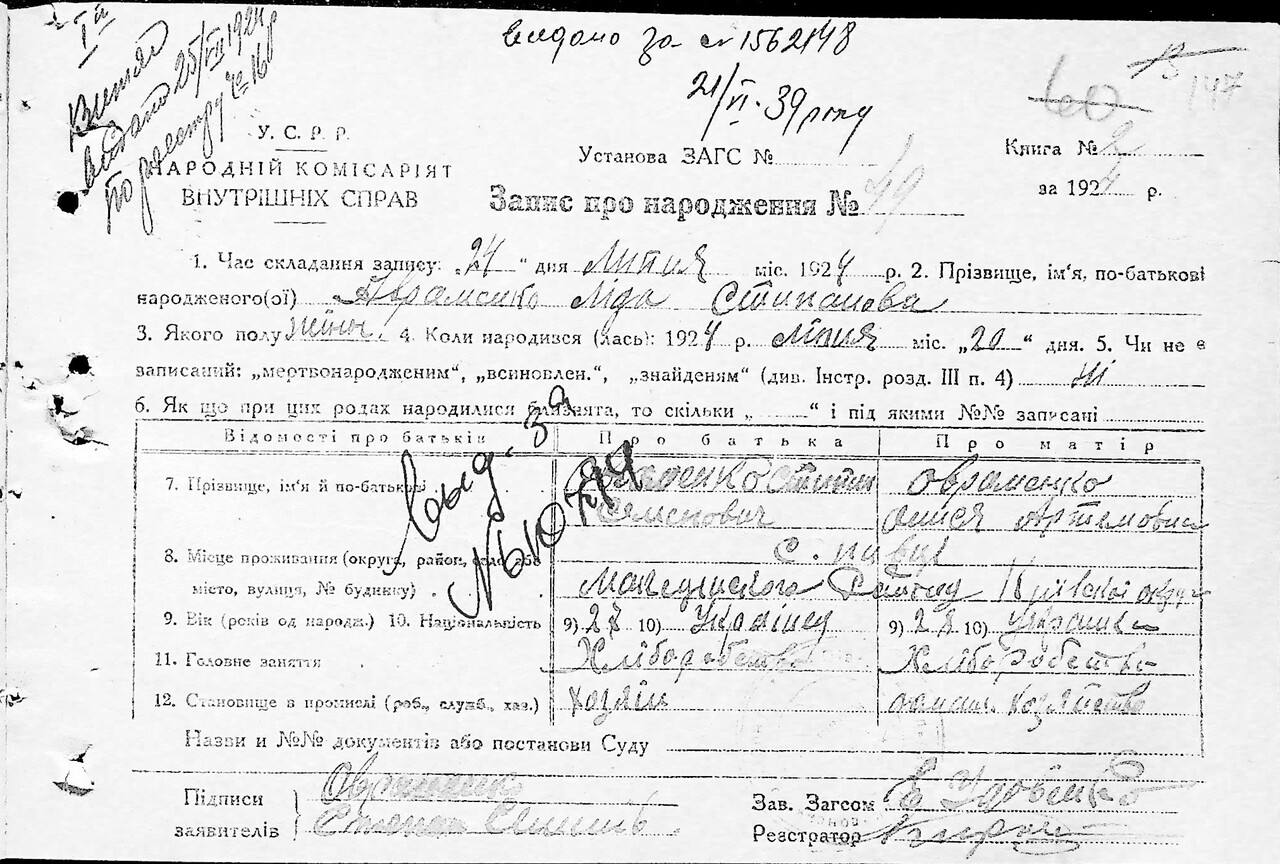 Витяг
видано 25/VII 1924 р
по реестру № 168
видано за № 1562148
21/VI-39 року
60
147
У. С. Р. Р.
НАРОДНІЙ КОМІСАРІЯТ
ВНУТРІШНІХ СПРАВ
Установа ЗАГС №
Книга № 2
за 1924 р.
Запис про народження № 49
1. Час складання запису: „24“ дня Липня міс. 1924 р. 2. Прізвище, ім'я, по-батькові
народженого(ої) Авраменко Ліда Степанова
3. Якого полу жіноч. 4. Коли народився (лась): 1924 р. Липня міс. „20“ дня. 5. Чи не є
записаний: „мертвонародженим“, „всиновлен.“, „знайденям“ (див. Інстр. розд. III п. 4) ні
6. Як що при цих родах народилися близнята, то скільки „ “ і під якими №№ записані
Відомості про батьків Про батька Про матір
7. Прізвище, ім'я й по-батькові Степан Овраменко
Семенович Артемовна
8. Місце проживання (округа, район, село або с. Півці
місто, вулиця, № будинку) Району Київської округи
9. Вік (років од народж.) 10. Національність 9) 28 10) Українец 9) 28 10) Украинка
11. Головне заняття Хліборобство Хліборобство
12. Становище в промислі (роб., служб., хаз.) хозяїн домашн. хозяйство
Выд. за
№
Назви и №№ документів або постанови Суду
Підписи Овраменко
заявителів Степан
Зав. Загсом
Реєстратор